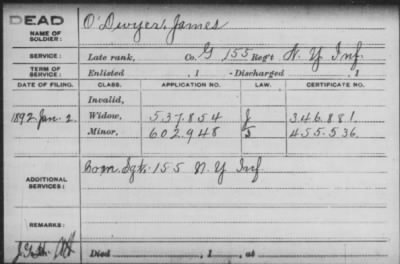 DEAD
NAME OF SOLDIER: O'Dwyer, James
SERVICE: Late rank, Co. G 155 Reg't N. Y. Inf.
TERM OF SERVICE: Enlisted , 1 - Discharged , 1
DATE OF FILING. CLASS. APPLICATION NO. LAW. CERTIFICATE NO.
Invalid,
1892 Jan. 2. Widow, 537.854 J 346.881.
Minor, 602.948 J 455.536.
ADDITIONAL SERVICES: Com Sgt. 155 N. Y Inf
REMARKS:
Died , 1 , at